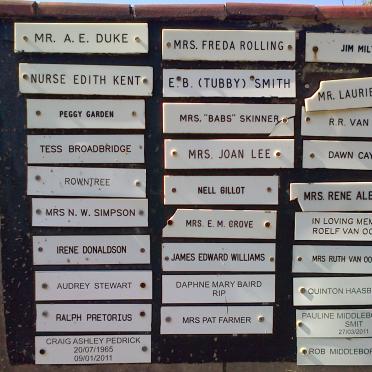 MR. A. E. DUKE
NURSE EDITH KENT
PEGGY GARDEN
TESS BROADBRIDGE
ROWNTREE
MRS N. W. SIMPSON
IRENE DONALDSON
AUDREY STEWART
RALPH PRETORIUS
CRAIG ASHLEY PEDRICK
20/07/1965
09/01/2011
MRS. FREDA ROLLING
E.B. (TUBBY) SMITH
MRS. "BABS" SKINNER
MRS. JOAN LEE
NELL GILLOT
MRS. E. M. GROVE
JAMES EDWARD WILLIAMS
DAPHNE MARY BAIRD
RIP
MRS PAT FARMER
JIM
MR. LAURIE
R.R. VAN
DAWN
MRS. RENE
IN LOVING
ROELF VAN
MRS RUTH VAN
QUINTON
PAULINE
SMIT
27/03/2011
ROB